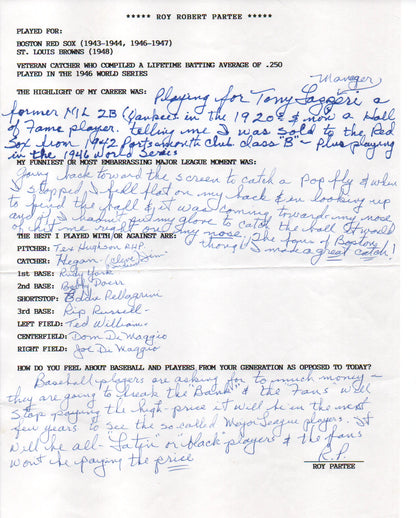 ***** ROY ROBERT PARTEE *****
PLAYED FOR:
BOSTON RED SOX (1943-1944, 1946-1947)
ST. LOUIS BROWNS (1948)
VETERAN CATCHER WHO COMPILED A LIFETIME BATTING AVERAGE OF .250
PLAYED IN THE 1946 WORLD SERIES
Manager
THE HIGHLIGHT OF MY CAREER WAS: Playing for Tony Lazzeri a
former N.Y. 2B (Yankees in the 1920s & now a Hall
of Fame player. telling me I was sold to the Red
Sox from 1942 Portsmouth club class "B" - Plus playing
in the 1946 World Series
MY FUNNIEST OR MOST EMBARRASSING MAJOR LEAGUE MOMENT WAS:
Going back toward the screen to catch a pop fly & when
I stopped, I fell flat on my back & in looking up
to find the ball & it was coming toward my nose
and if I hadn't put my glove to catch the ball it would
of hit me right on my nose. The fans of Boston
thought I made a great catch!
THE BEST I PLAYED WITH OR AGAINST ARE:
PITCHER: Tex Hughson RHP.
CATCHER: Hegan - Jim
1st BASE: Rudy York
2nd BASE: Bobby Doerr
SHORTSTOP: Eddie Pellagrini
3rd BASE: Rip Russell -
LEFT FIELD: Ted Williams
CENTERFIELD: Dom DiMaggio
RIGHT FIELD: Joe DiMaggio
HOW DO YOU FEEL ABOUT BASEBALL AND PLAYERS FROM YOUR GENERATION AS OPPOSED TO TODAY?
Baseball players are asking for to much money -
they are going to break the "Bank" & the fans will
stop paying the high-price it will be in the next
few years to see the so-called Major League players. It
will be all - "Latin" or "black" players & the fans
won't be paying the price
R.P.
ROY PARTEE